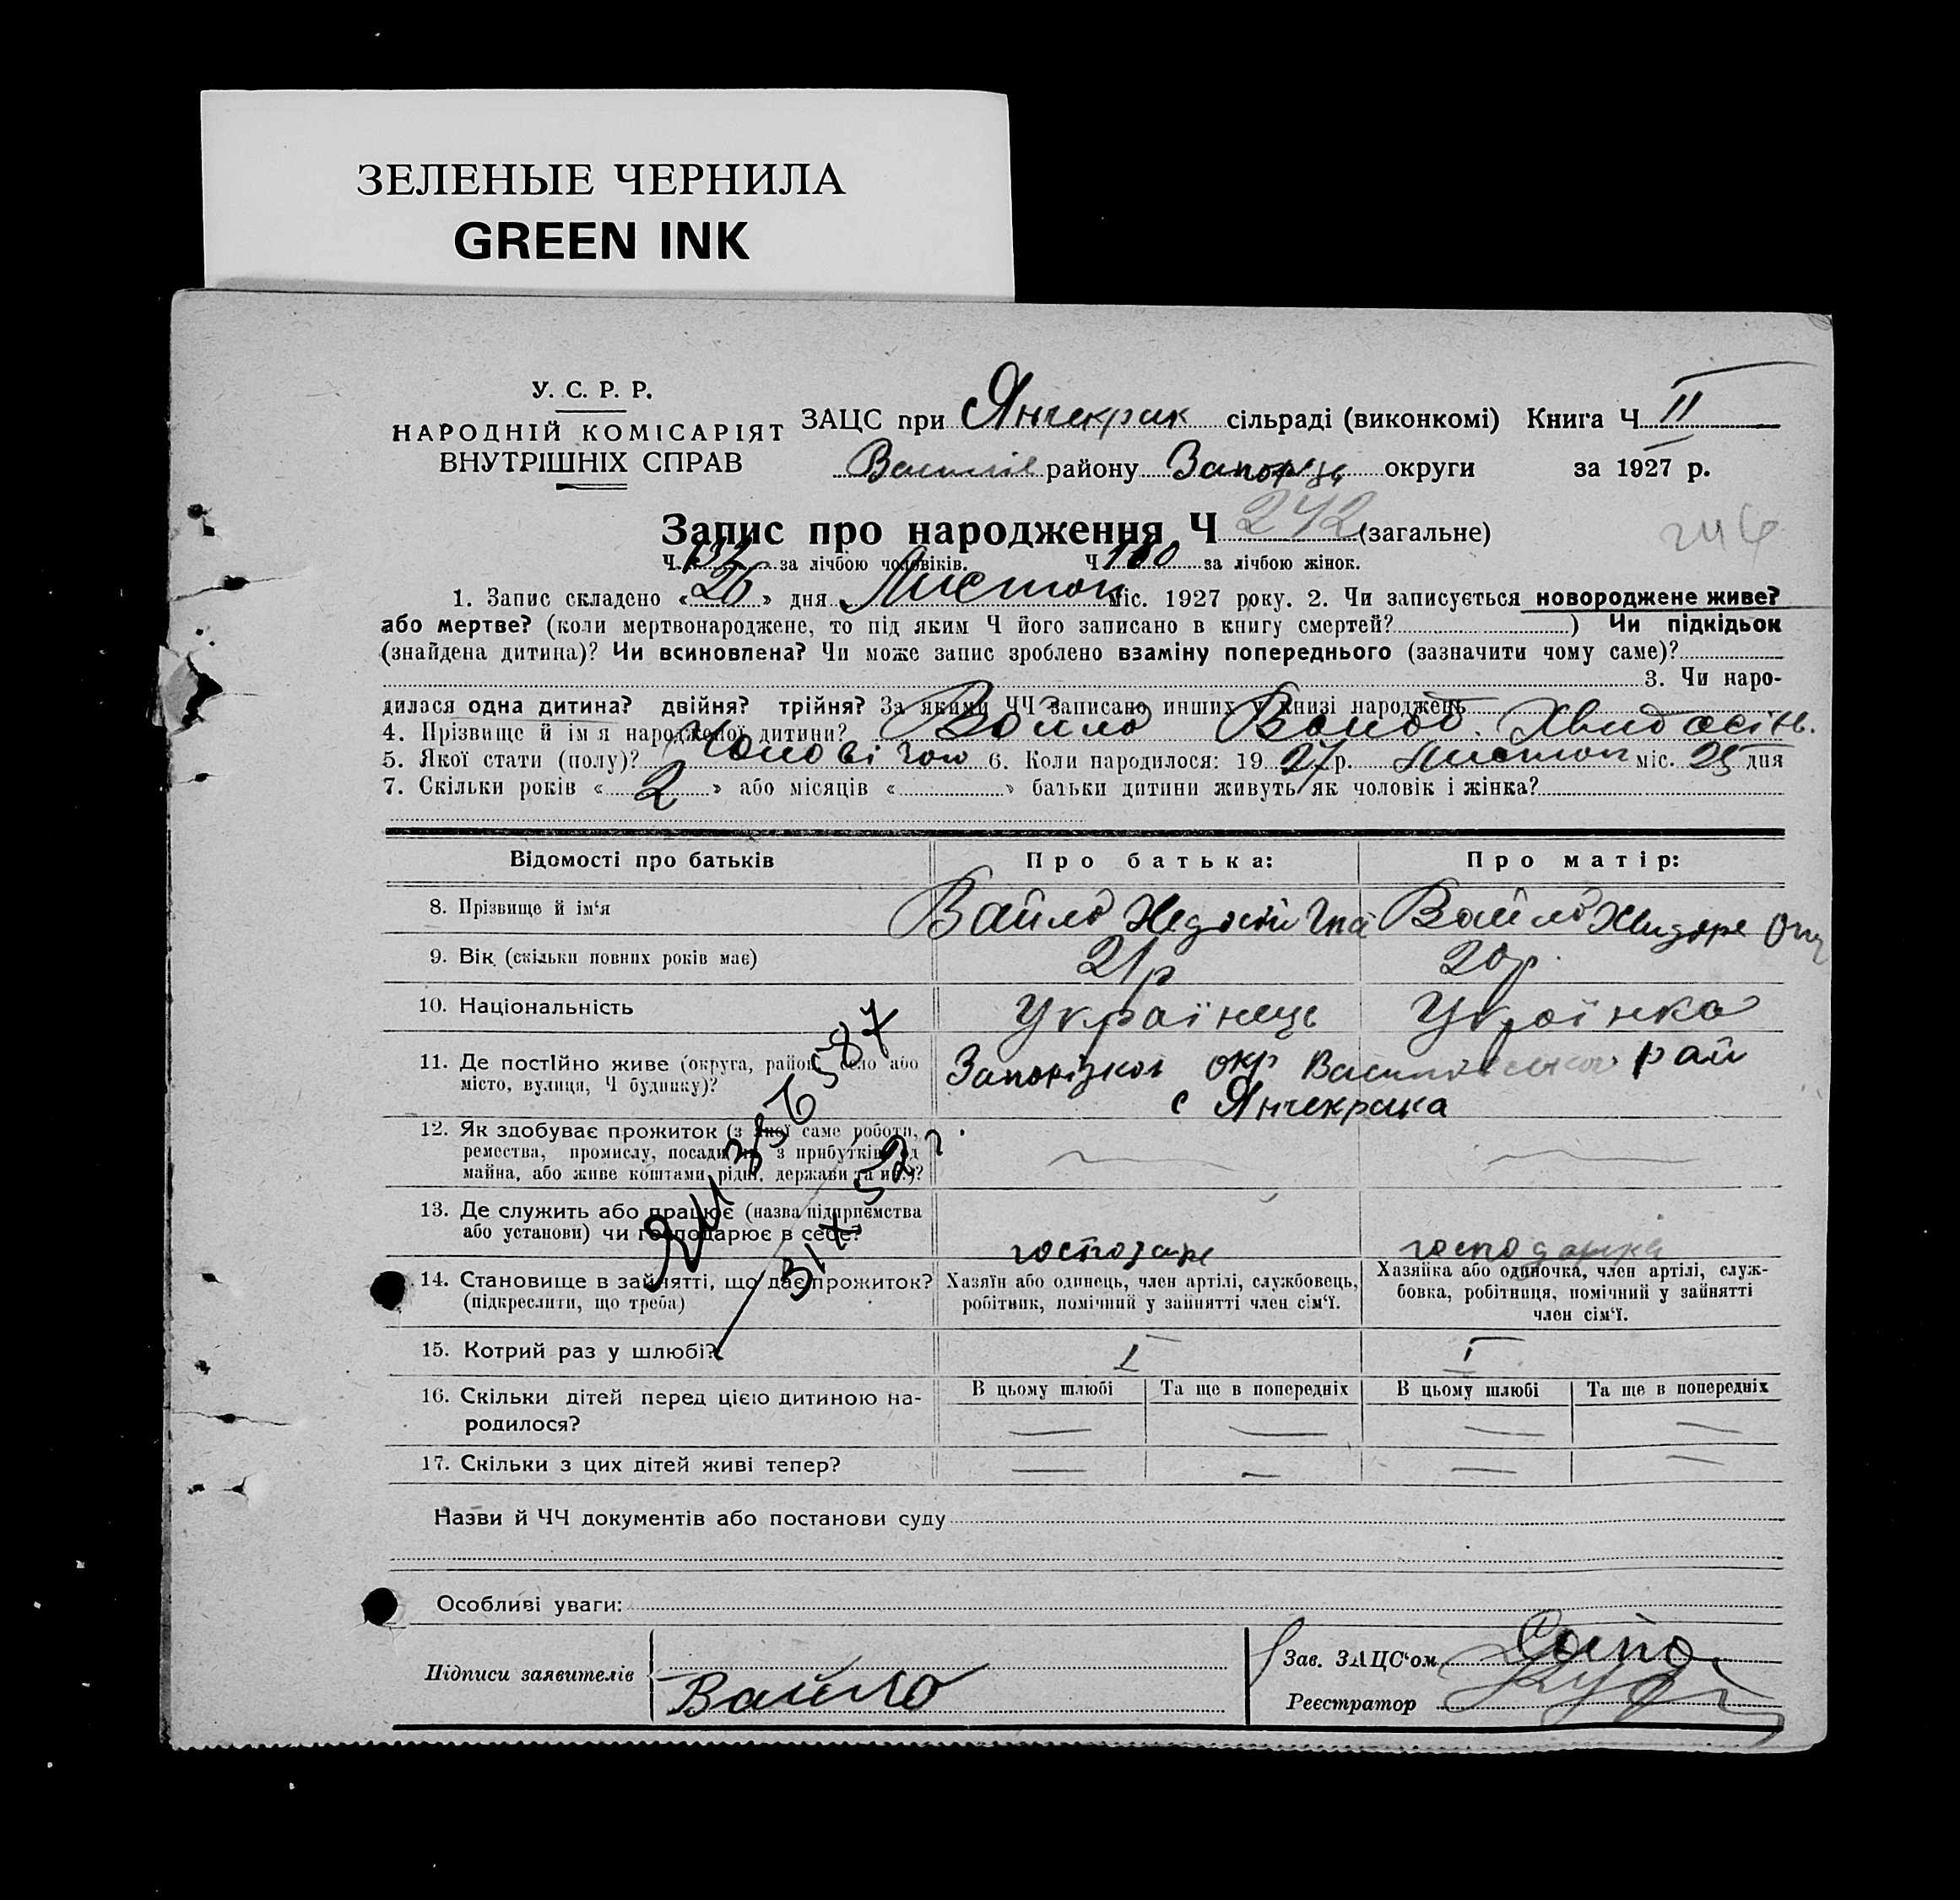 ЗЕЛЕНЫЕ ЧЕРНИЛА
GREEN INK
У. С. Р. Р.
НАРОДНІЙ КОМІСАРІЯТ
ВНУТРІШНІХ СПРАВ
ЗАЦС при Янчекрак сільраді (виконкомі) Книга Ч II
району округи за 1927 р.
Запис про народження Ч 242 (загальне)
246
Ч. за лічбою чоловіків. Ч 110 за лічбою жінок.
1. Запис складено « 26 » дня Листоп міс. 1927 року. 2. Чи записується новороджене живе?
або мертве? (коли мертвонароджене, то під яким Ч його записано в книгу смертей? ) Чи підкідьок
(знайдена дитина)? Чи всиновлена? Чи може запис зроблено взаміну попереднього (зазначити чому саме)?
3. Чи наро-
дилася одна дитина? двійня? трійня? За якими ЧЧ записано инших у книзі народжень
4. Прізвище й ім'я народженої дитини? Вайло
5. Якої стати (полу)? 6. Коли народилося: 19 27 р. Листоп міс. 25 дня
7. Скільки років « 2 » або місяців « » батьки дитини живуть як чоловік і жінка?
Відомості про батьків Про батька: Про матір:
8. Прізвище й ім'я Вайло Вайло
9. Вік (скільки повних років має) 21 р 20 р.
10. Національність Українець Українка
11. Де постійно живе (округа, район, село або Запорізкої окр рай
місто, вулиця, Ч будинку)? с Янчекрака
12. Як здобуває прожиток (з якої саме роботи,
ремества, промислу, посади чи з прибутків од
майна, або живе коштами рідні, держави та ин.)?
13. Де служить або працює (назва підприємства
або установи) чи господарює в себе? господарь
14. Становище в зайнятті, що дає прожиток? Хазяїн або одинець, член артілі, службовець, Хазяйка або одиночка, член артілі, служ-
(підкреслити, що треба) робітник, помічний у зайнятті член сім'ї. бовка, робітниця, помічний у зайнятті
член сім'ї.
15. Котрий раз у шлюбі? I I
16. Скільки дітей перед цією дитиною на- В цьому шлюбі Та ще в попередніх В цьому шлюбі Та ще в попередніх
родилося? — — — —
17. Скільки з цих дітей живі тепер? — — — —
Назви й ЧЧ документів або постанови суду
Особливі уваги:
Підписи заявителів Вайло
Зав. ЗАЦС'ом
Реєстратор